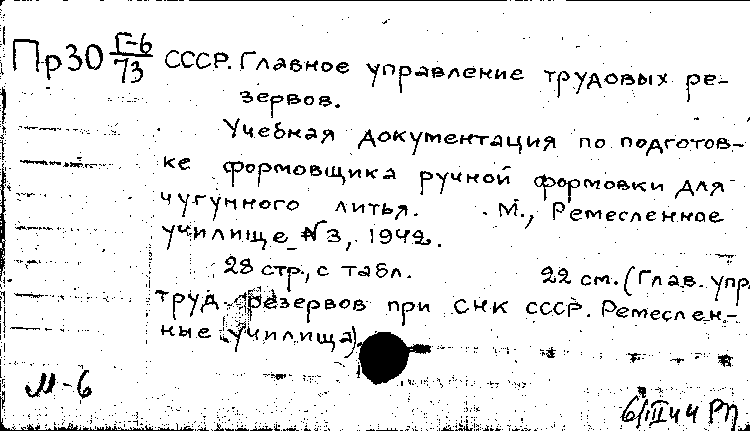 Пр30 Г-6/73 СССР. Главное управление трудовых ре-
зервов.
Учебная документация по подготов-
ке формовщика ручной формовки для
чугунного литья. М., Ремесленное
училище N3, 1942.
28 стр., с табл. 22 см. (Глав. упр.
труд. резервов при СНК СССР. Ремеслен-
ные училища)
М-6
6/III 44 РП